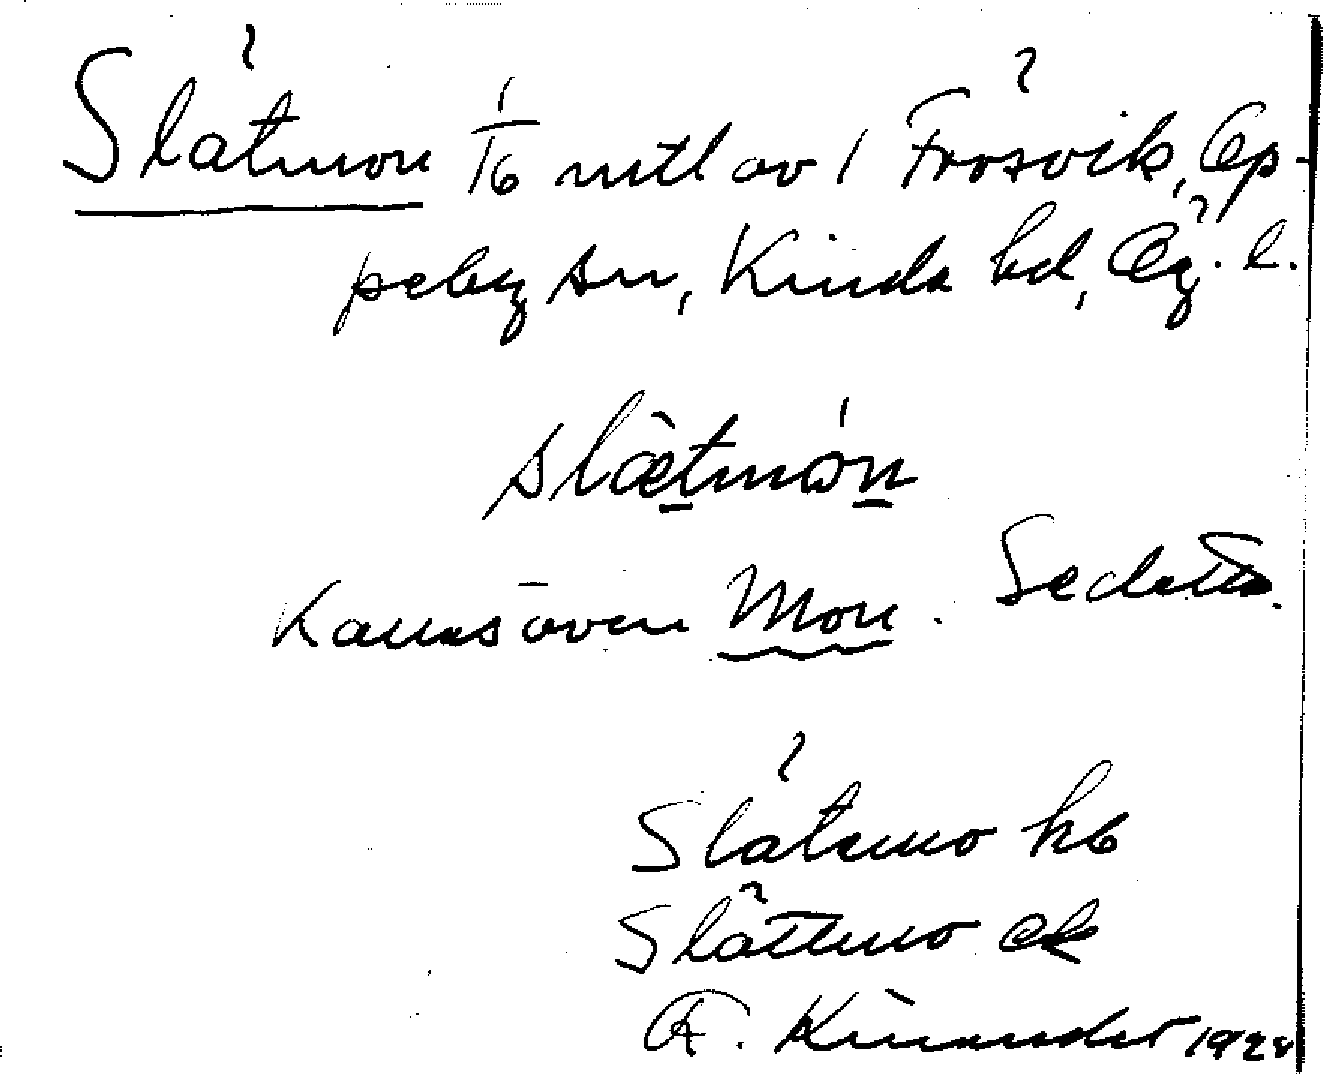 Slätmon 1/16 mtl av 1 Frösvik, Op-
peby sn, Kinda hd, Ög. l.
slætmón
Kallas även Mon.
Slätmo hb
Slättmo ek
F. Kinander 1928